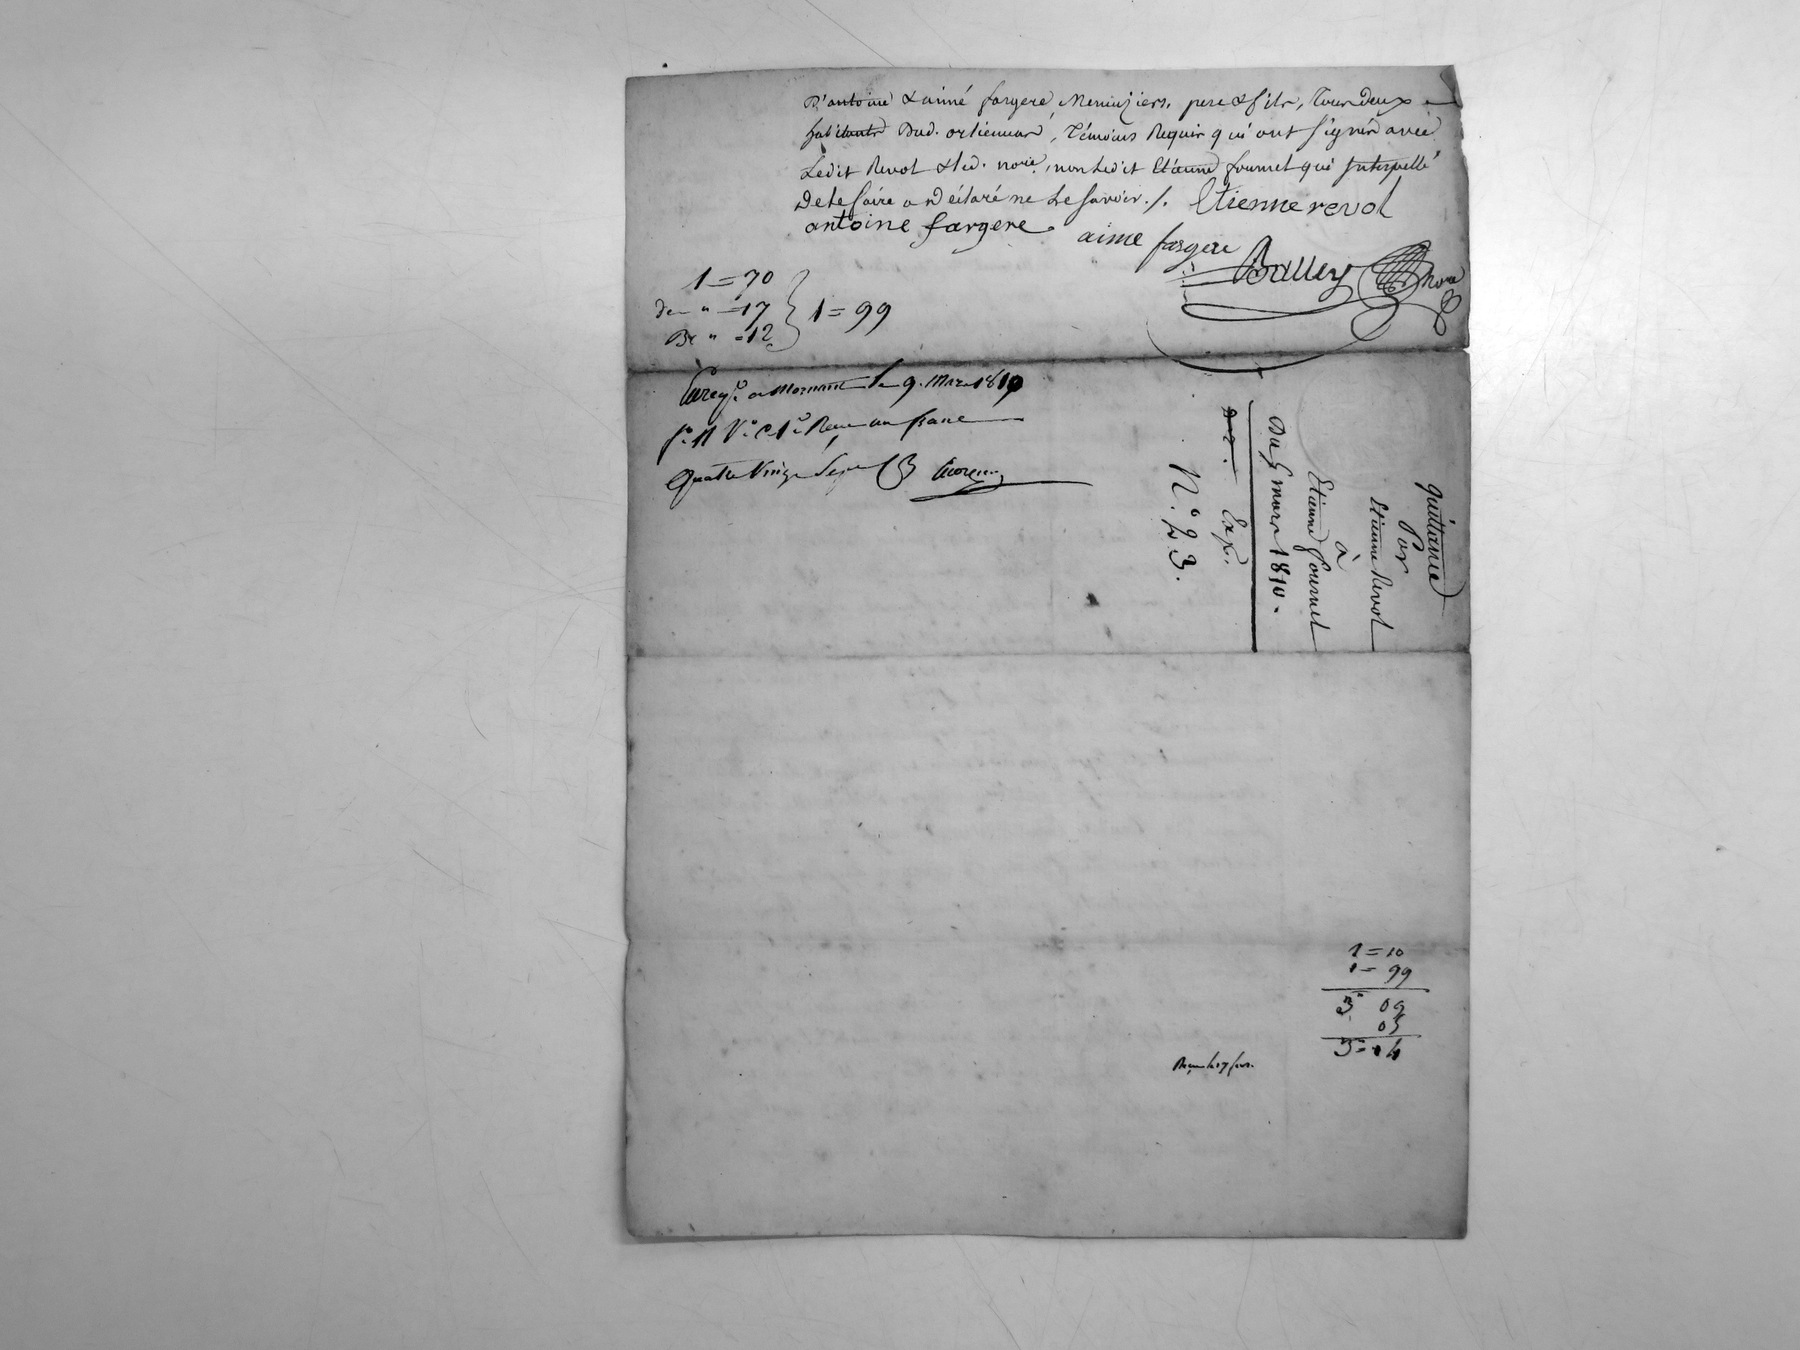 D'antoine & aimé fargere, Menuiziers, pere & fils, Tous deux
habitants Dud. orlienas, Témoins Requis qui ont signés avec
Ledit Revol & led. no.re, non Ledit Etienne fournel qui Interpellé
De le faire a Déclaré ne Le savoir ./. Etienne revol
antoine fargere aimé fargere Balley no.re
1 = 70
De " = 17
" = 12
1 = 99
Enreg.é a Mornant le 9. Mars 1810
f.o 11 V.o C. 1.e Reçu un franc
quatre vingt
quittance
Par
Etienne Revol
à
Etienne fournel
Du 5 mars 1810.
Exp.
N.o 23.
1 = 10
1 = 99
3 " 09
05
3 = 14